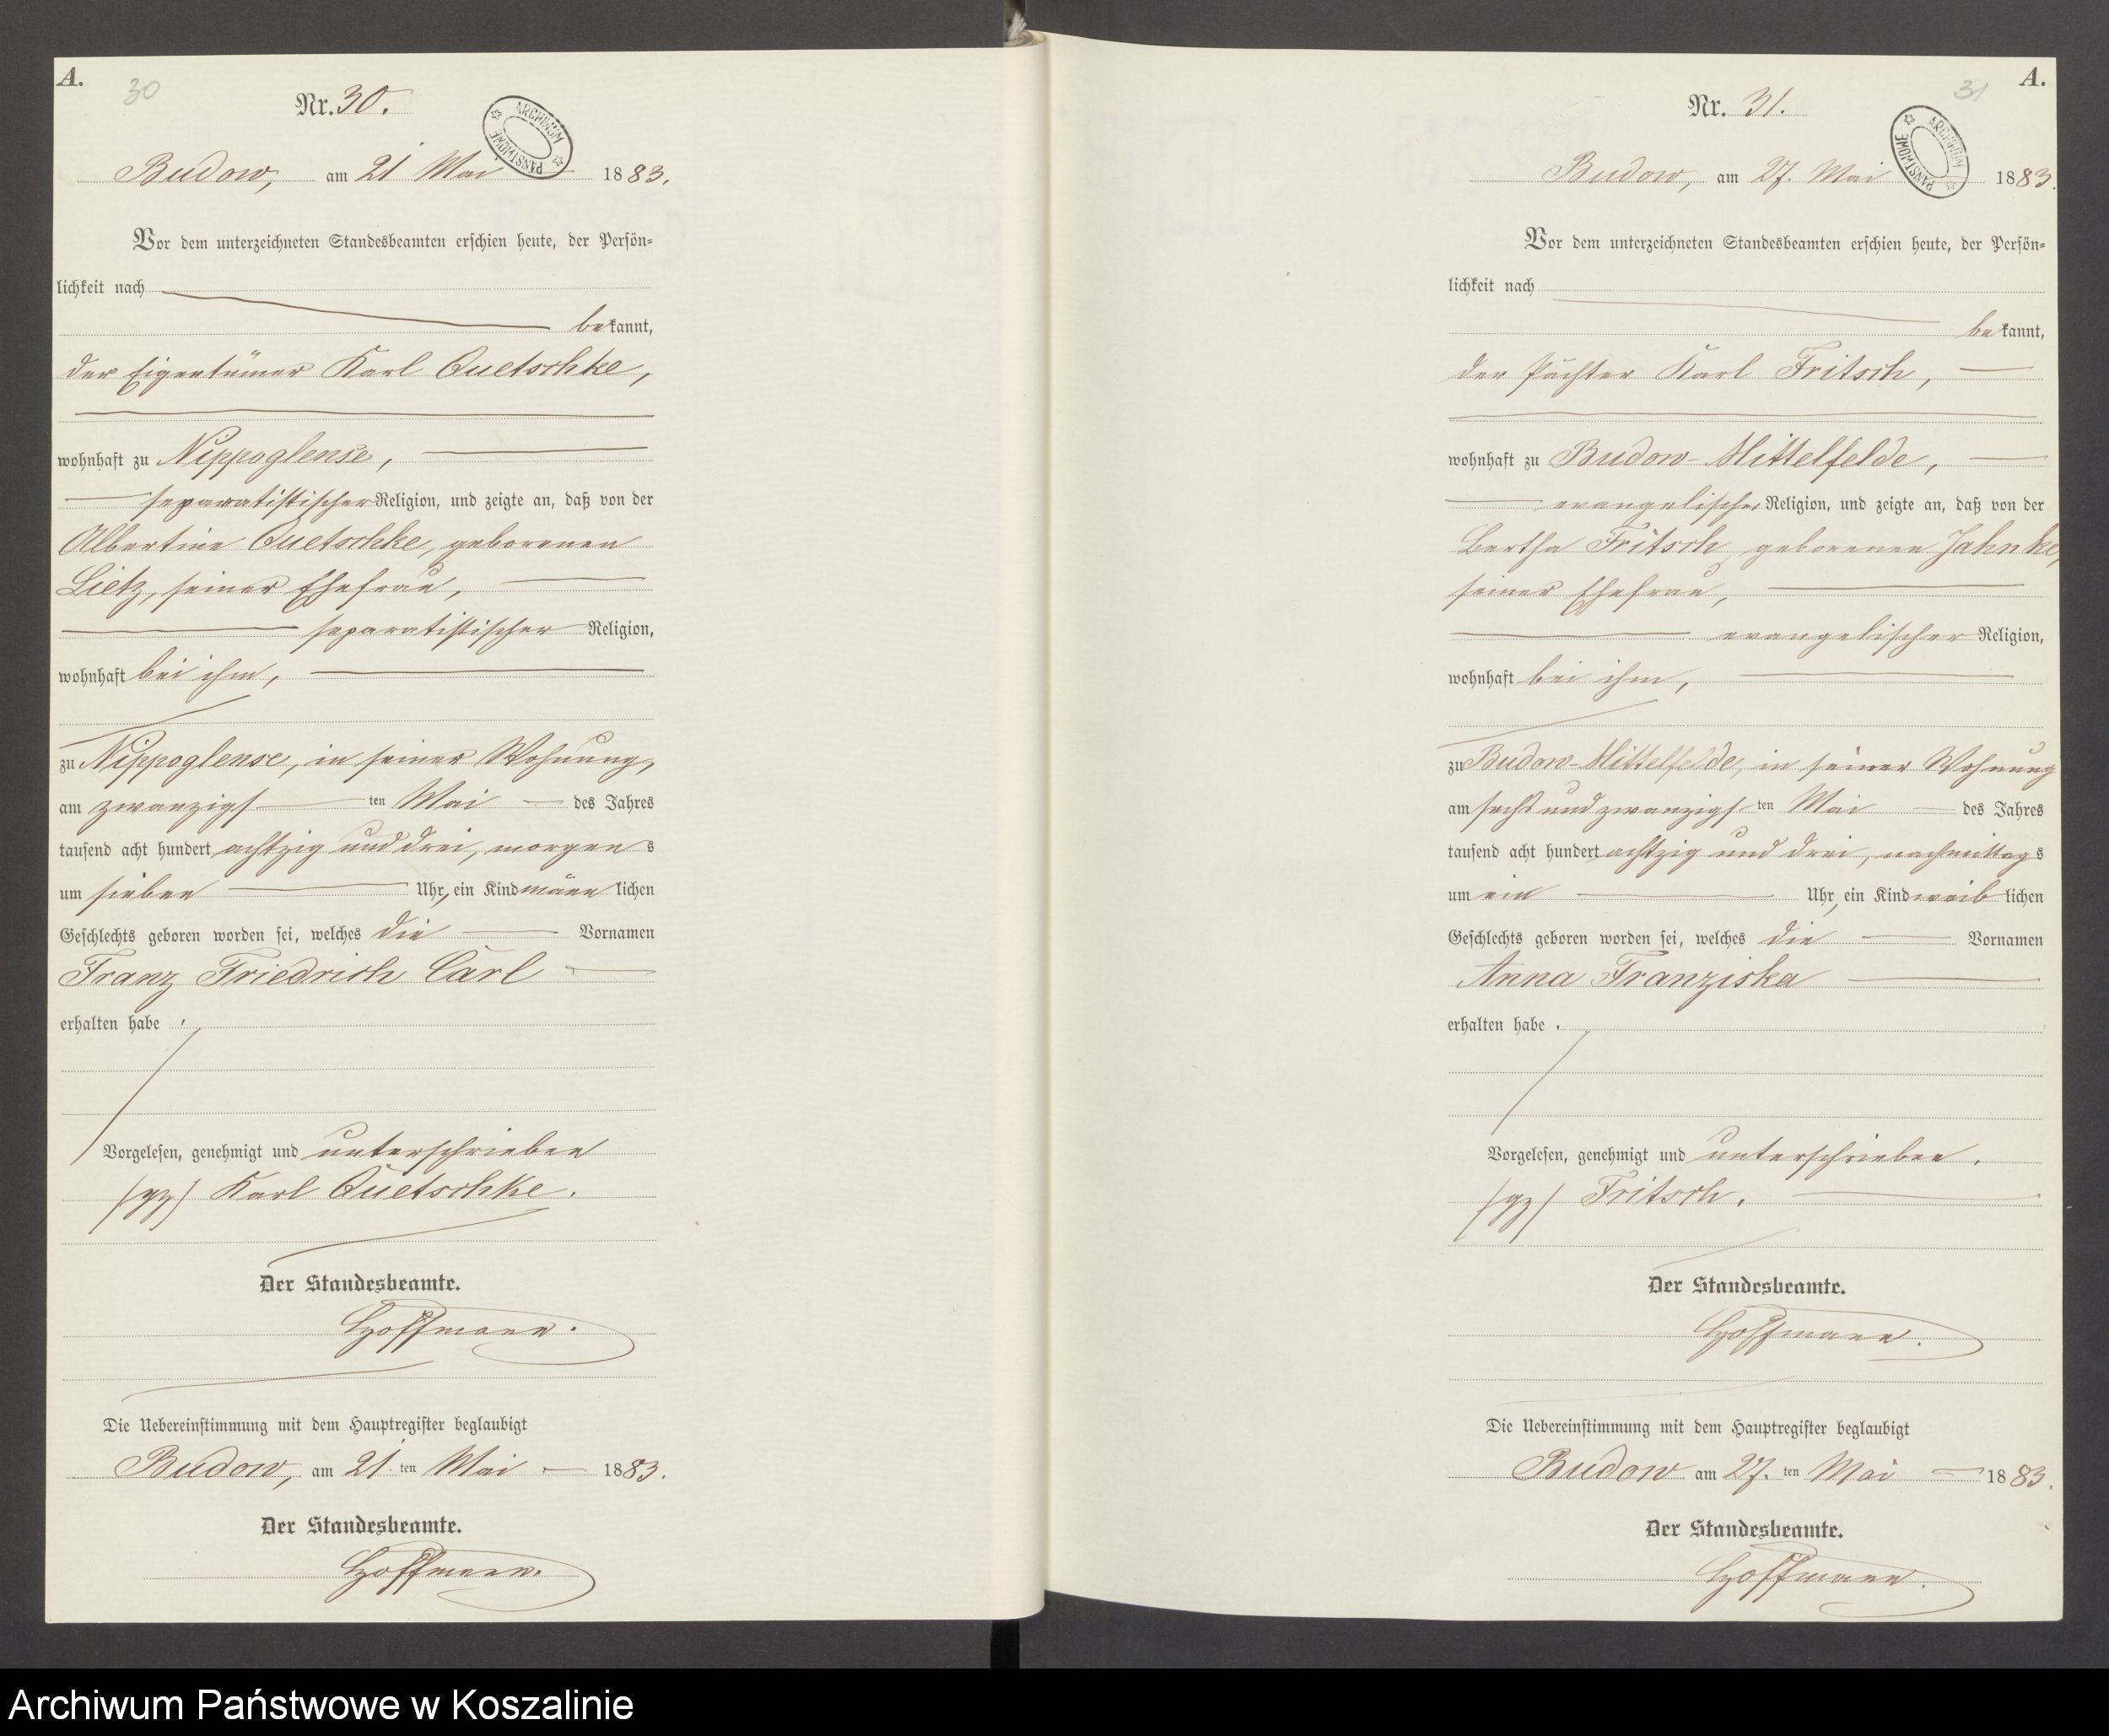 A.
30
Nr. 30.
ARCHIWUM PAŃSTWOWE
Budow, am 21 Mai 1883.
Vor dem unterzeichneten Standesbeamten erschien heute, der Persön-
lichkeit nach
bekannt,
der Eigentümer Karl Quetschke,
wohnhaft zu Nippoglense,
separatistischer Religion, und zeigte an, daß von der
Albertine Quetschke, geborenen
Lietz, seiner Ehefrau,
separatistischer Religion,
wohnhaft bei ihm,
zu Nippoglense, in seiner Wohnung,
am zwanzigsten Mai des Jahres
tausend acht hundert achtzig und drei, morgens
um sieben Uhr, ein Kind männlichen
Geschlechts geboren worden sei, welches die Vornamen
Franz Friedrich Carl
erhalten habe.
Vorgelesen, genehmigt und unterschrieben
(gz) Karl Quetschke.
Der Standesbeamte.
Hoffmann.
Die Uebereinstimmung mit dem Hauptregister beglaubigt
Budow, am 21. ten Mai 1883.
Der Standesbeamte.
Hoffmann.
A.
31
Nr. 31.
ARCHIWUM PAŃSTWOWE
Budow, am 27. Mai 1883.
Vor dem unterzeichneten Standesbeamten erschien heute, der Persön-
lichkeit nach
bekannt,
der Pächter Karl Fritsch,
wohnhaft zu Budow-Mittelfelde,
evangelischer Religion, und zeigte an, daß von der
Bertha Fritsch geborenen Jahnke,
seiner Ehefrau,
evangelischer Religion,
wohnhaft bei ihm,
zu Budow-Mittelfelde, in seiner Wohnung
am sechs und zwanzigsten Mai des Jahres
tausend acht hundert achtzig und drei, nachmittags
um ein Uhr, ein Kind weiblichen
Geschlechts geboren worden sei, welches die Vornamen
Anna Franziska
erhalten habe.
Vorgelesen, genehmigt und unterschrieben.
(gz) Fritsch.
Der Standesbeamte.
Hoffmann.
Die Uebereinstimmung mit dem Hauptregister beglaubigt
Budow am 27. ten Mai 1883.
Der Standesbeamte.
Hoffmann.
Archiwum Państwowe w Koszalinie